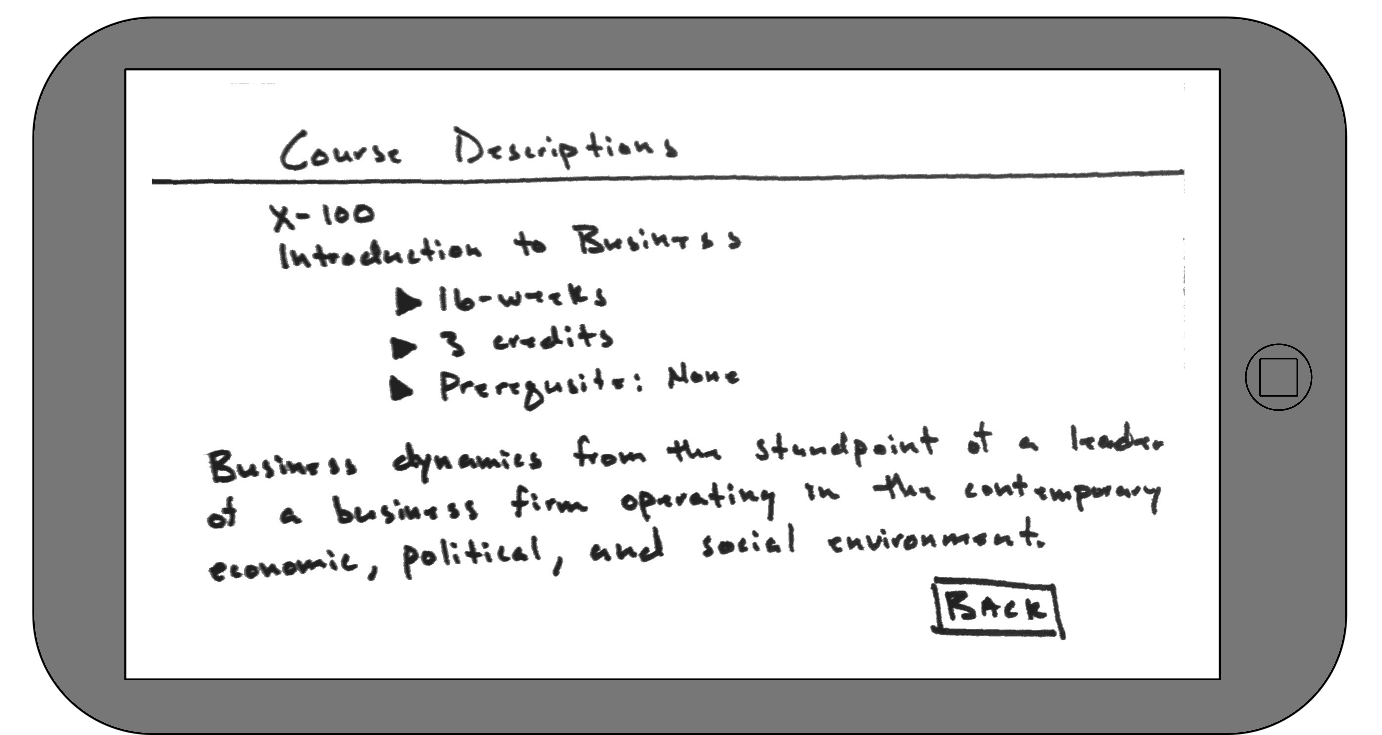 Course Descriptions
X-100
Introduction to Business
▶ 16-weeks
▶ 3 credits
▶ Prerequsite: None
Business dynamics from the standpoint of a leader
of a business firm operating in the contemporary
economic, political, and social environment.
BACK